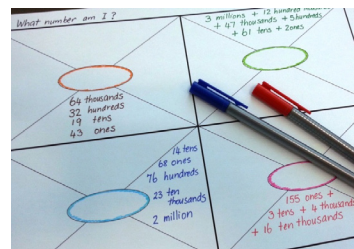 What number am I?
3 millions + 12 hundred
+ 47 thousands + 5 hundreds
+ 61 tens + 2 ones
64 thousands
32 hundreds
19 tens
43 ones
14 tens
68 ones
76 hundreds
23 ten
thousands
2 million
155 ones +
3 tens + 4 thousands
+ 16 ten thousands